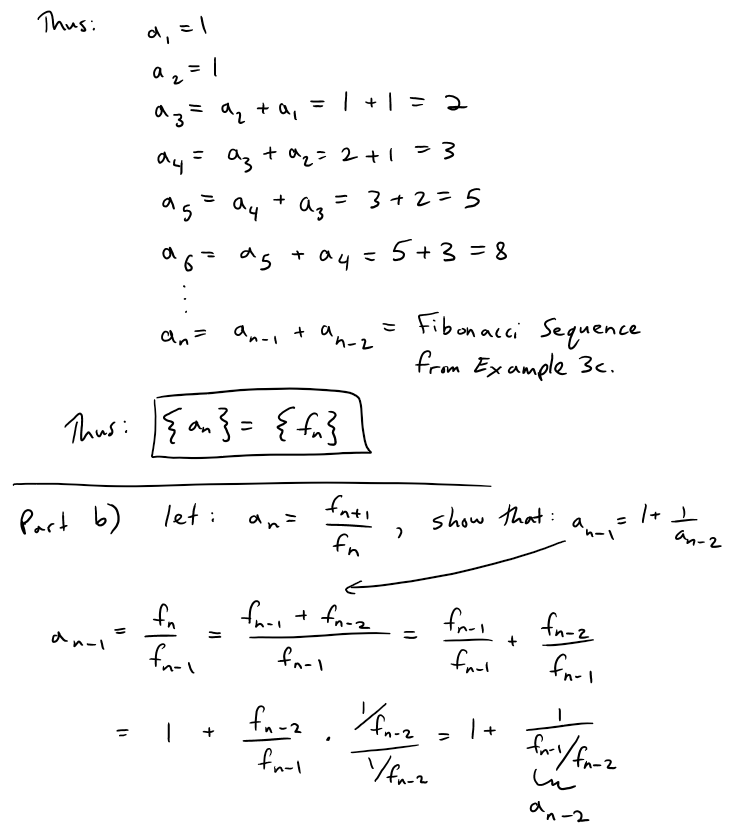 Thus: a₁ = 1
a₂ = 1
a₃ = a₂ + a₁ = 1 + 1 = 2
a₄ = a₃ + a₂ = 2 + 1 = 3
a₅ = a₄ + a₃ = 3 + 2 = 5
a₆ = a₅ + a₄ = 5 + 3 = 8
⋮
aₙ = aₙ₋₁ + aₙ₋₂ = Fibonacci Sequence
from Example 3c.
Thus: {aₙ} = {fₙ}
Part b) let: aₙ = fₙ₊₁/fₙ , show that: aₙ₋₁ = 1 + 1/aₙ₋₂
aₙ₋₁ = fₙ/fₙ₋₁ = (fₙ₋₁ + fₙ₋₂)/fₙ₋₁ = fₙ₋₁/fₙ₋₁ + fₙ₋₂/fₙ₋₁
= 1 + fₙ₋₂/fₙ₋₁ · (1/fₙ₋₂)/(1/fₙ₋₂) = 1 + 1/(fₙ₋₁/fₙ₋₂)
aₙ₋₂